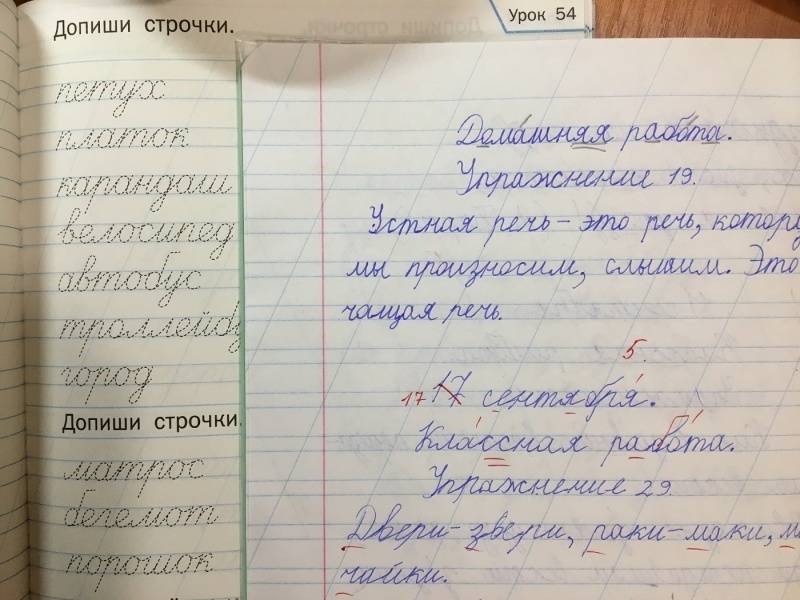 Допиши строчки.
Урок 54
петух
платок
карандаш
велосипед
автобус
троллейбу
город
Допиши строчки.
матрос
бегемот
порошок
Домашняя работа.
Упражнение 19.
Устная речь – это речь, котору
мы произносим, слышим. Это
чащая речь.
5.
17 17 сентября.
Классная работа.
Упражнение 29.
Двери – звери, раки – маки, м
чайки.